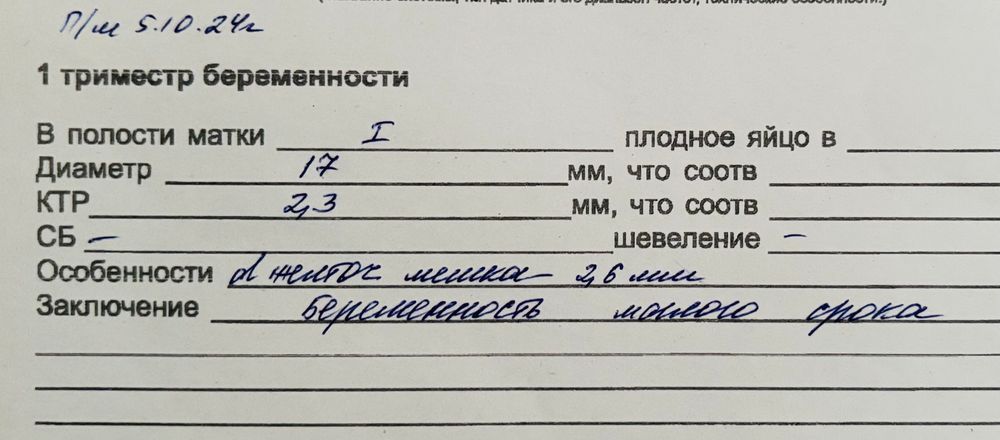 П/м 5.10.24г
1 триместр беременности
В полости матки I плодное яйцо в
Диаметр 17 мм, что соотв
КТР 2,3 мм, что соотв
СБ – шевеление –
Особенности d желточ мешка – 2,6 мм
Заключение беременность малого срока